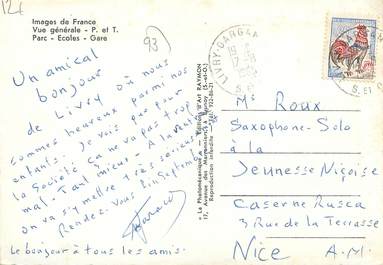 12f
Images de France
Vue générale - P. et T.
Parc - Ecoles - Gare
93
Un amical
bonjour
de Livry où nous
sommes heureux parmi nos
enfants. Je vois par pour
la Société ça ne va pas trop
mal. Tant mieux. A la
on va s'y mettre très sérieusement
Rendez-vous fin Septembre
Le bonjour à tous les amis.
« La Photomécanique » - Editions d'Art RAYMON
17, Avenue des
Reproduction interdite - Tél. 922-86-21
LIVRY-GARGAN
19 H
17-8
S. ET O.
Mr Roux
Saxophone-Solo
à la
Jeunesse Niçoise
Caserne Rusca
3 Rue de la Terrasse
Nice A.M.